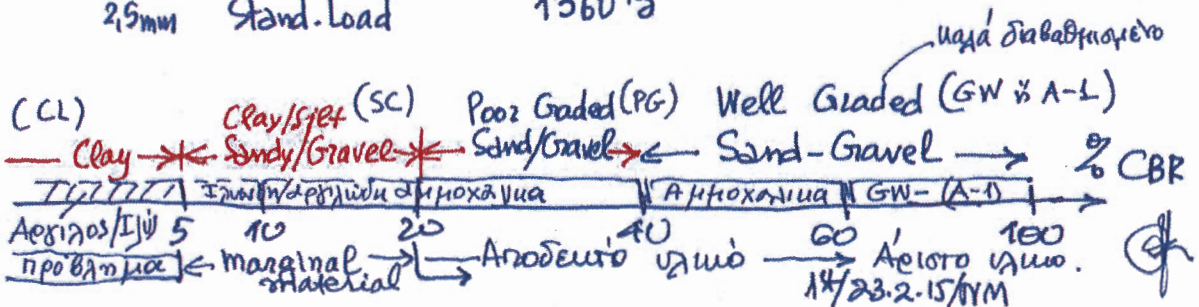 2,5mm Stand. Load 1360
καλά διαβαθμισμένο
(CL) Clay/Silt (SC) Poor Graded (PG) Well Graded (GW ή A-1)
Clay Sandy/Gravel Sand/Gravel Sand-Gravel % CBR
αμμοχάλικα Αμμοχάλικα GW-(A-1)
Άργιλος/Ιλύ 5 10 20 40 60 100
πρόβλημα marginal material Αποδεκτό υλικό Άριστο υλικό.
14/23.2.15/NM